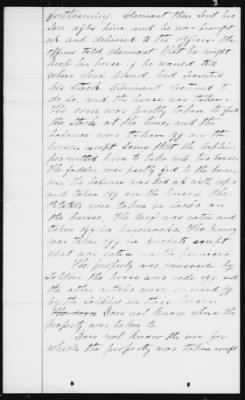 forthcoming. Claimant then sent his
son after him and he was brought
up and delivered to the officer. The
officer told claimant that he might
keep his horse if he wanted till
where
his stock claimant declined to
do so, and the horse was taken.
The corn was partly taken to feed
the stock at the time, and the
balance was taken off on the
horses, except some that the Captain
permitted him to take into his house.
The fodder was partly fed to the horses
and the balance was tied up with
and taken off on the horses. The
Potatoes were taken in sacks on
the horses. The Beef was eaten and
taken off in haversacks. The honey
was taken off in buckets except
what was eaten on the premises.
The property was removed by
soldiers the horse was rode off and
the other articles were carried off
by the soldiers on their horses.
Does not know where the
property was taken to.
Does not know the use for
which the property was taken except